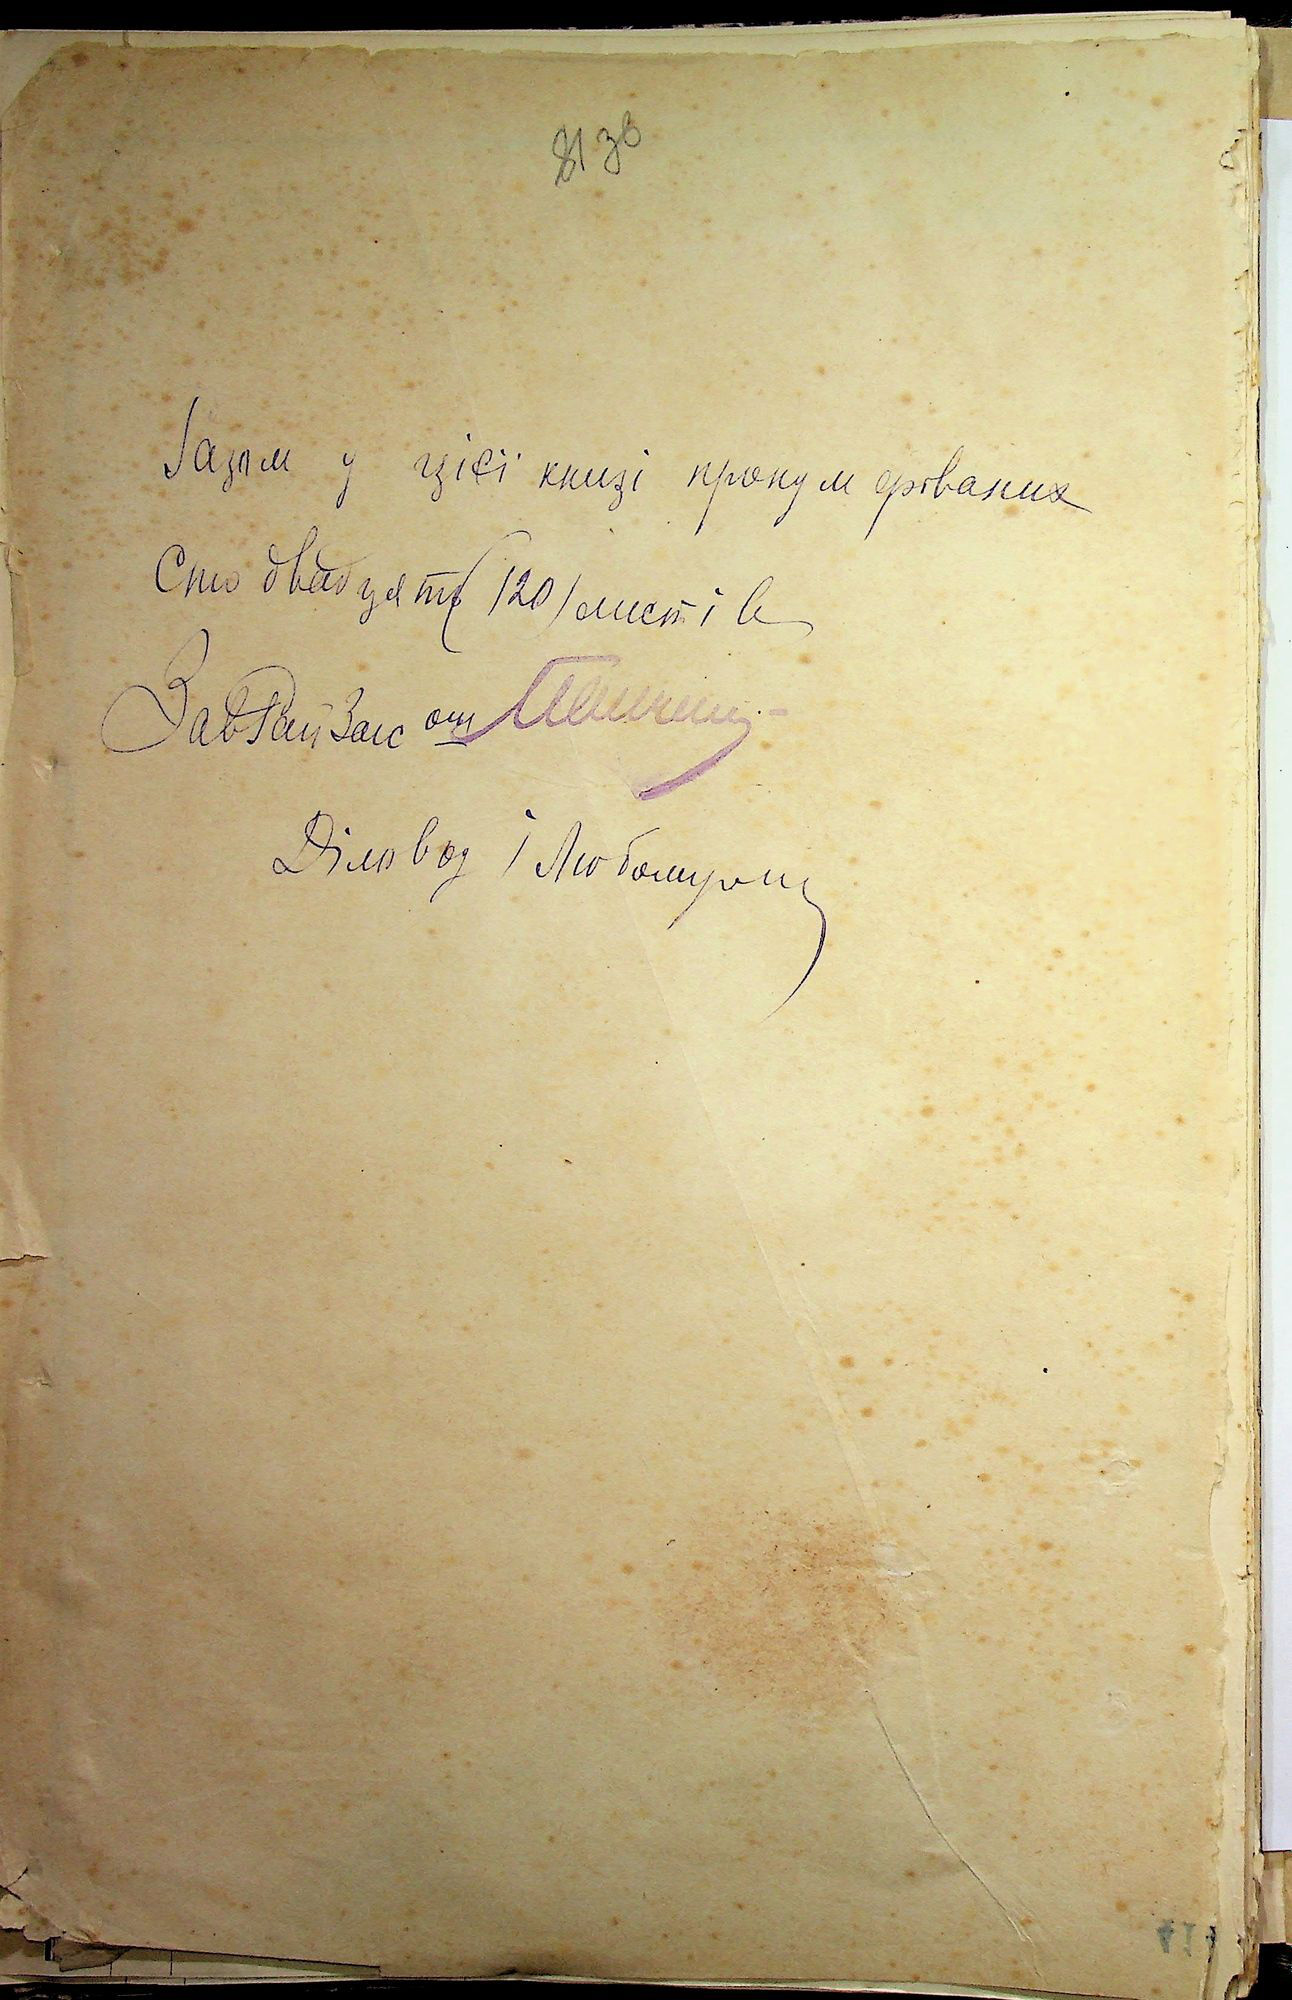 81 зв
Разом у цієї книзі пронумерованих
Сто двадцять (120) листів
ЗавРайЗагс
Діловод